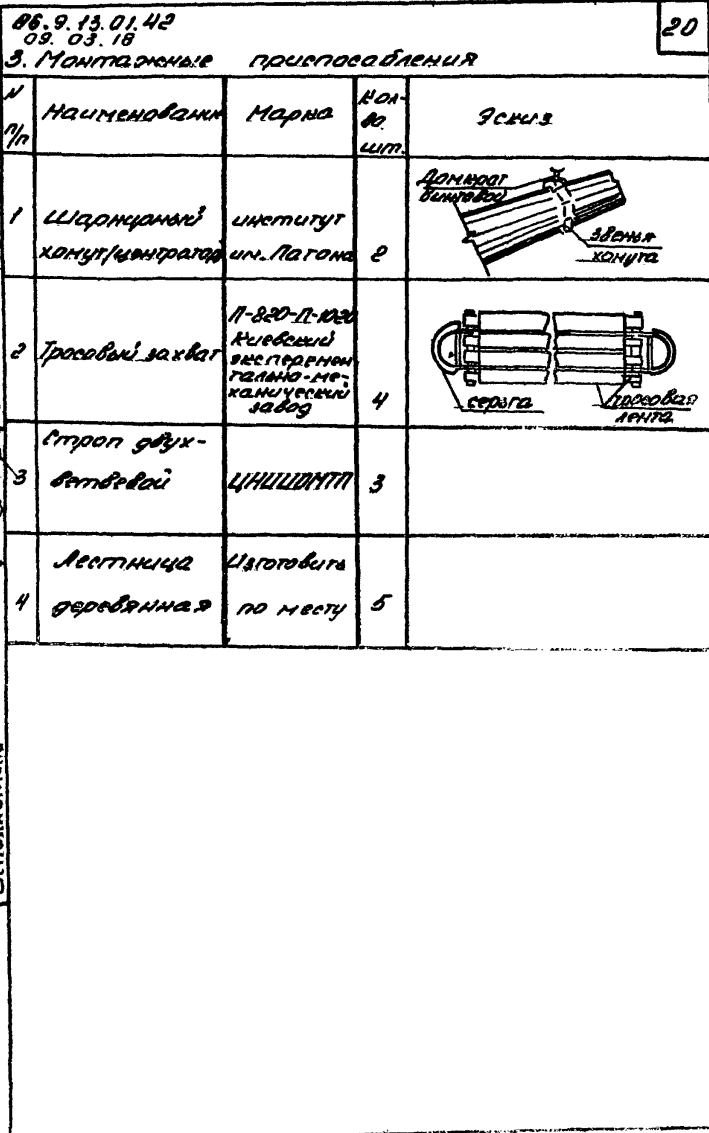 06.9.13.01.42
09.03.18
20
3. Монтажные приспособления
N п/п
Наименовани
Марка
Кол-во. шт.
Эскиз
1
Шарнирный
хомут/центратор
институт
им. Патона
2
Домкрат
винтовой
звенья
хомута
2
Тросовый захват
П-820-П-1020
Киевский
эксперемен
тально-ме-
ханический
завод
4
серьга
тросовая
лента
3
Строп двух-
ветвевой
ЦНИИОМТП
3
4
Лестница
деревянная
Изготовить
по месту
5